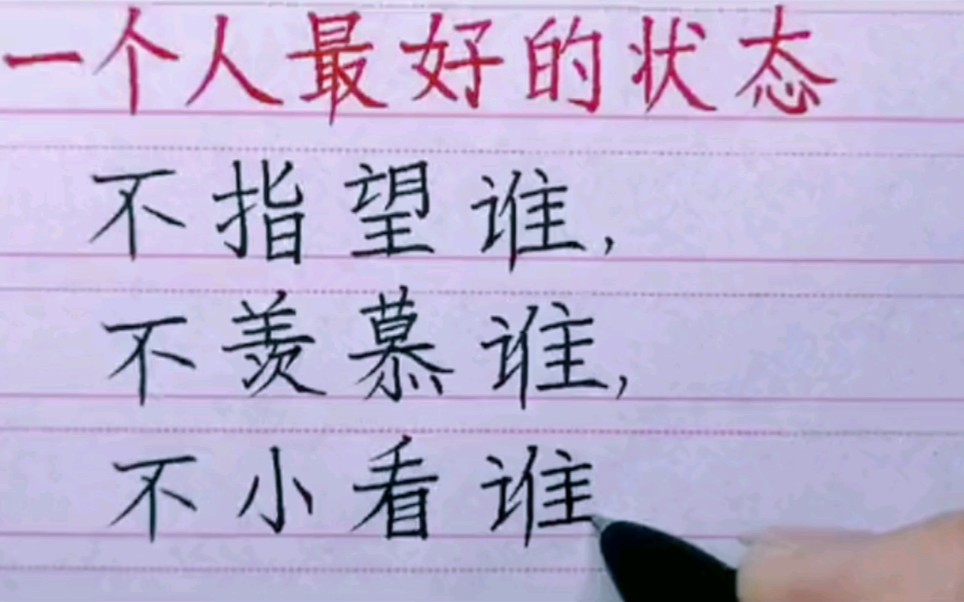 一个人最好的状态
不指望谁,
不羡慕谁,
不小看谁